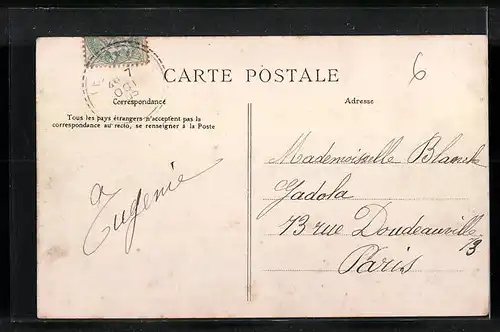 6
CARTE POSTALE
Correspondance
Adresse
Tous les pays étrangers n'acceptent pas la
correspondance au recto, se renseigner à la Poste
Eugénie
Mademoiselle Blanche
Gadola
73 rue Doudeauville
73
Paris